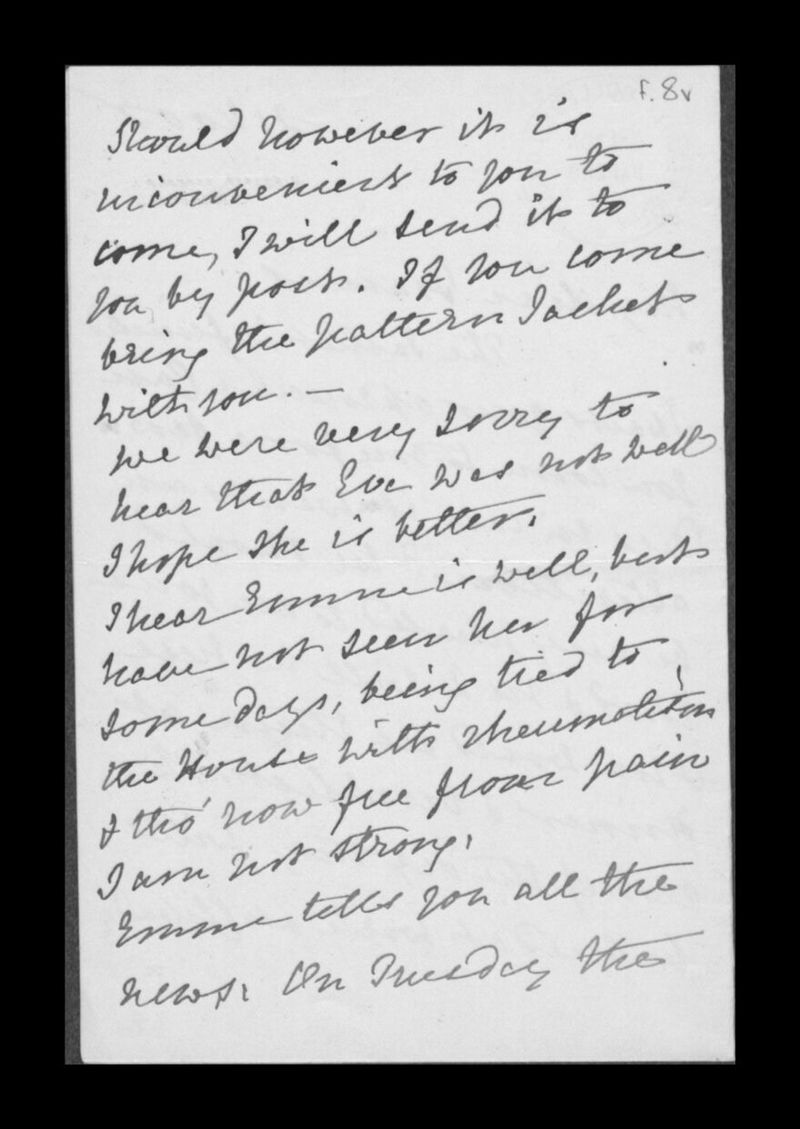 f. 8v
Should however it is
inconvenient to you to
come, I will send it to
you by post. If you come
bring the pattern Jackets
with you. —
We were very sorry to
hear that Eve was not well
I hope she is better.
I hear Emmie is well, but
have not seen her for
some days, being tied to
the House with rheumatism
& tho' now free from pain
I am not strong.
Emmie tells you all the
news. On Tuesday the